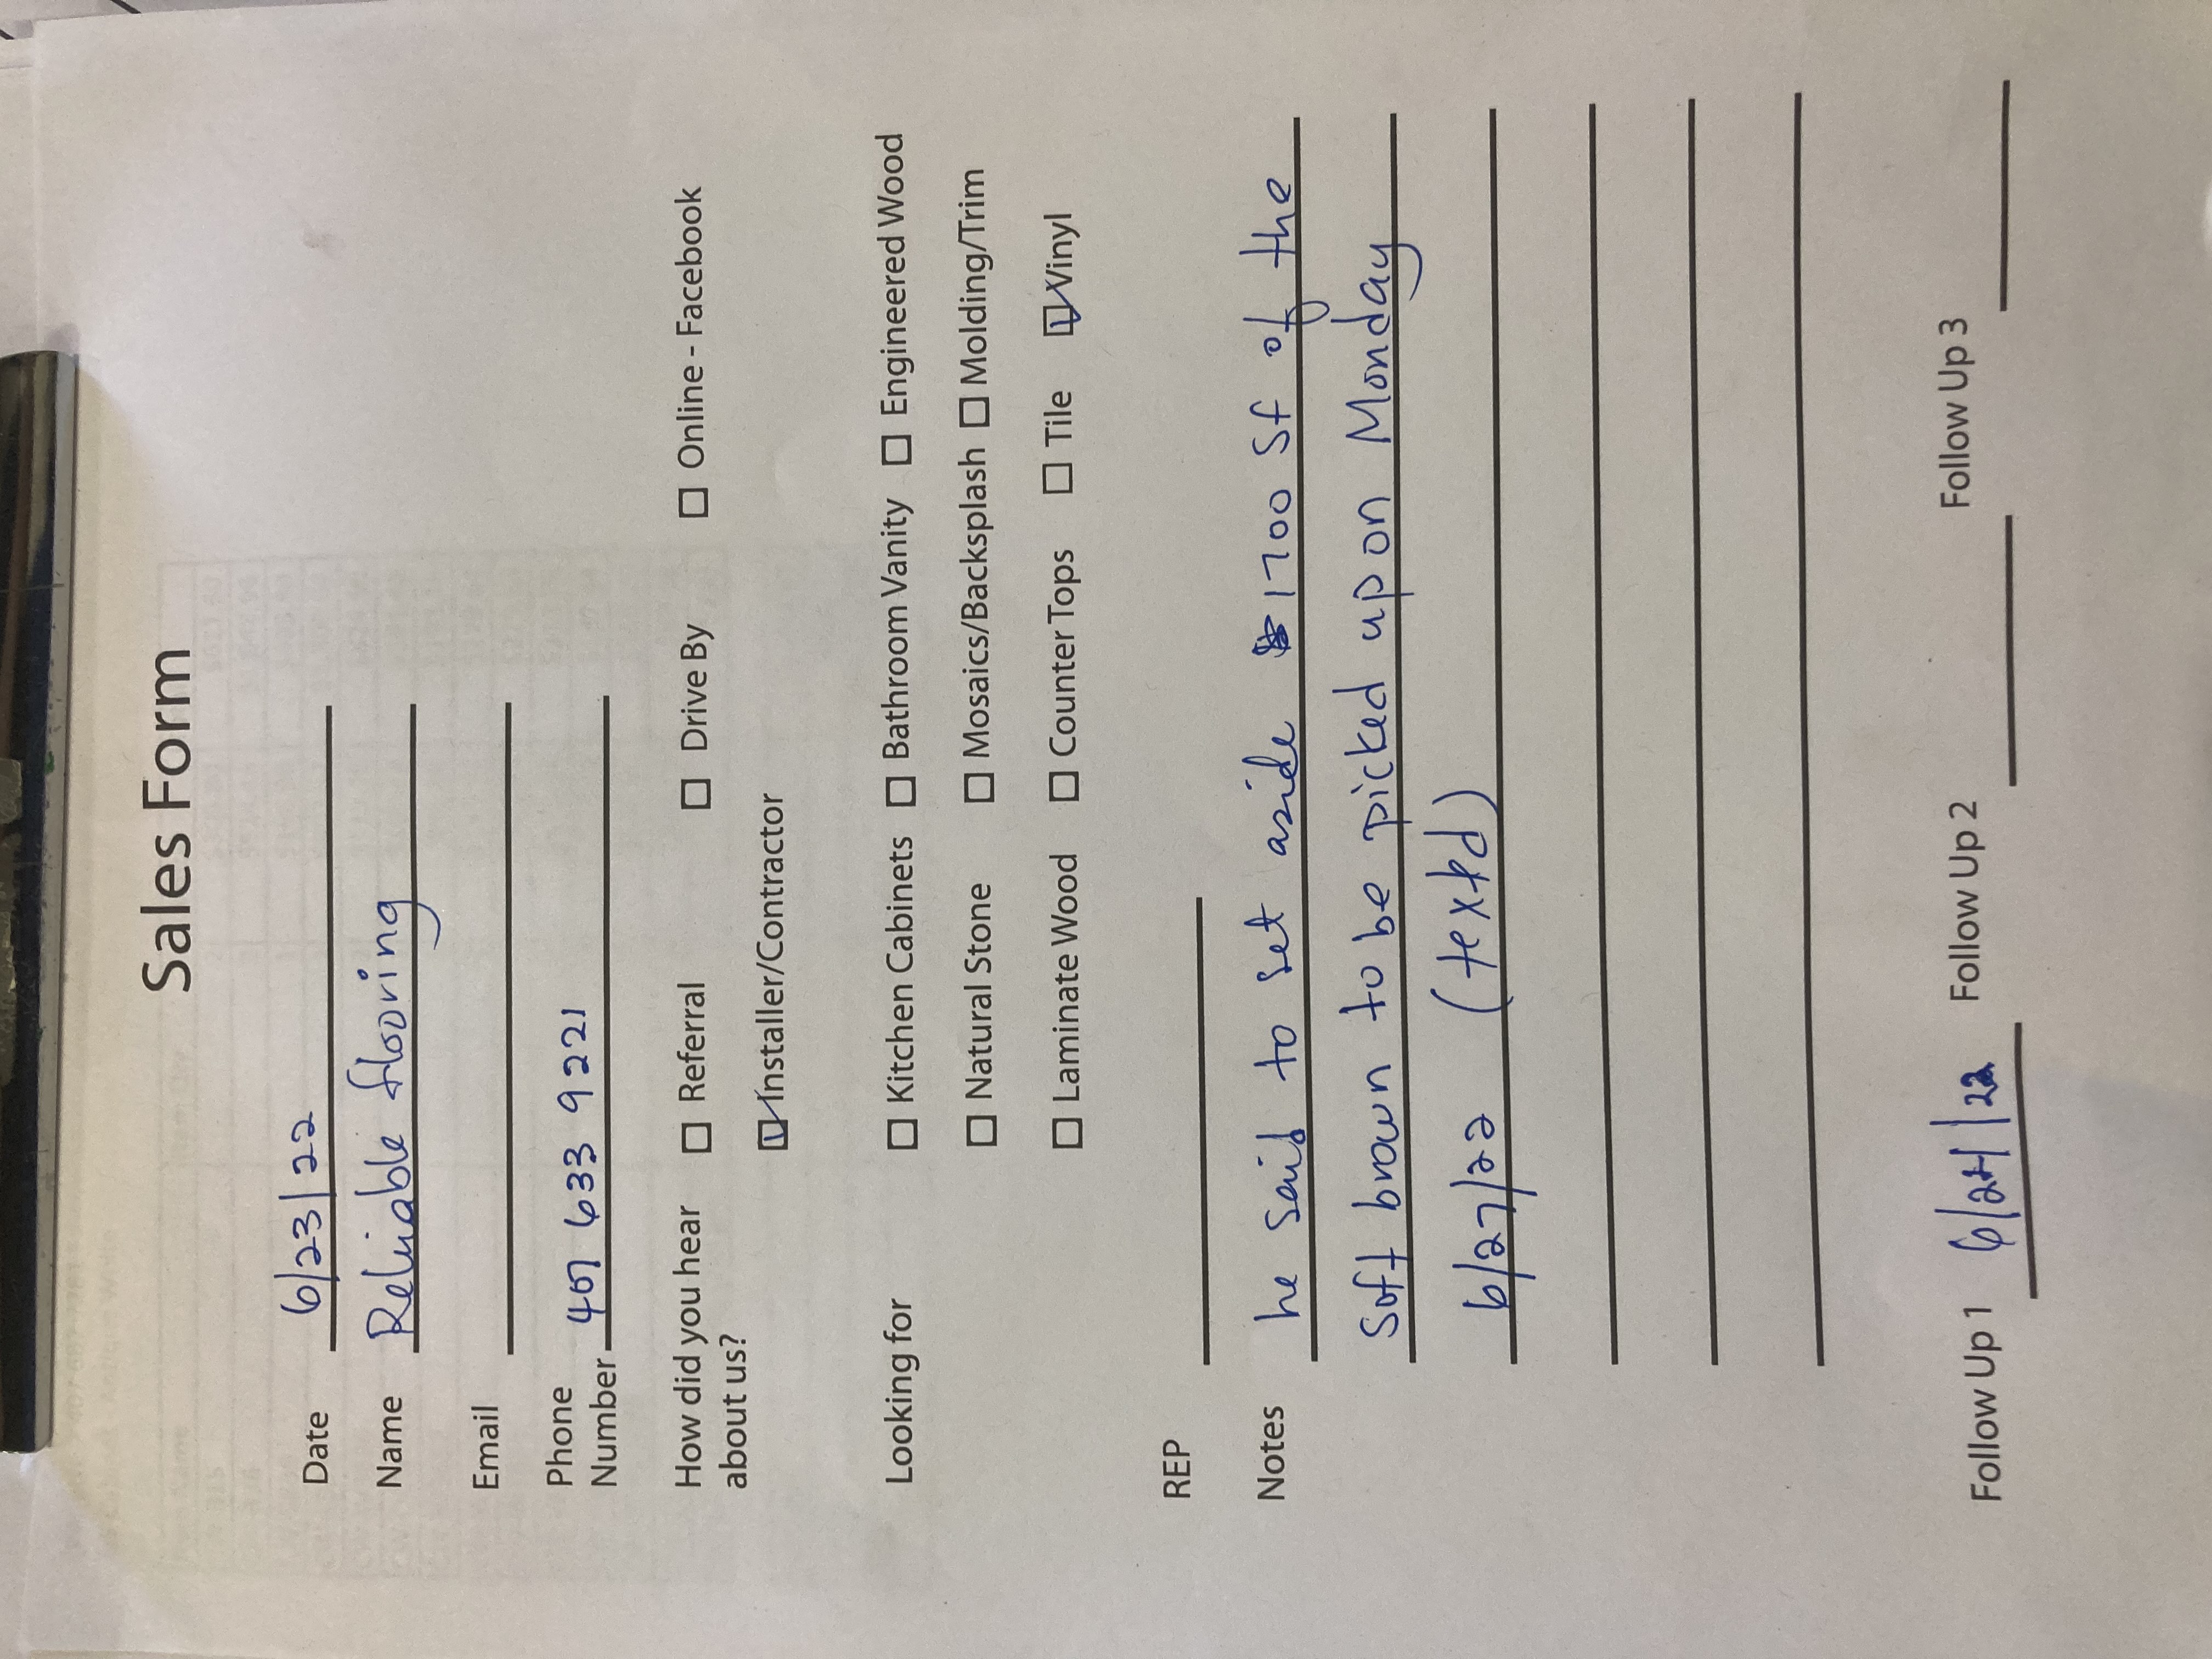 Sales Form
Date 6/23/22
Name Reliable flooring
Email
Phone
Number 407 633 9221
How did you hear ☐ Referral ☐ Drive By ☐ Online - Facebook
about us? ☑ Installer/Contractor
Looking for ☐ Kitchen Cabinets ☐ Bathroom Vanity ☐ Engineered Wood
☐ Natural Stone ☐ Mosaics/Backsplash ☐ Molding/Trim
☐ Laminate Wood ☐ Counter Tops ☐ Tile ☑ Vinyl
REP
Notes he said to set aside 1700 sf of the
soft brown to be picked up on Monday
6/27/22 (textd)
Follow Up 1 6/24/22 Follow Up 2 Follow Up 3